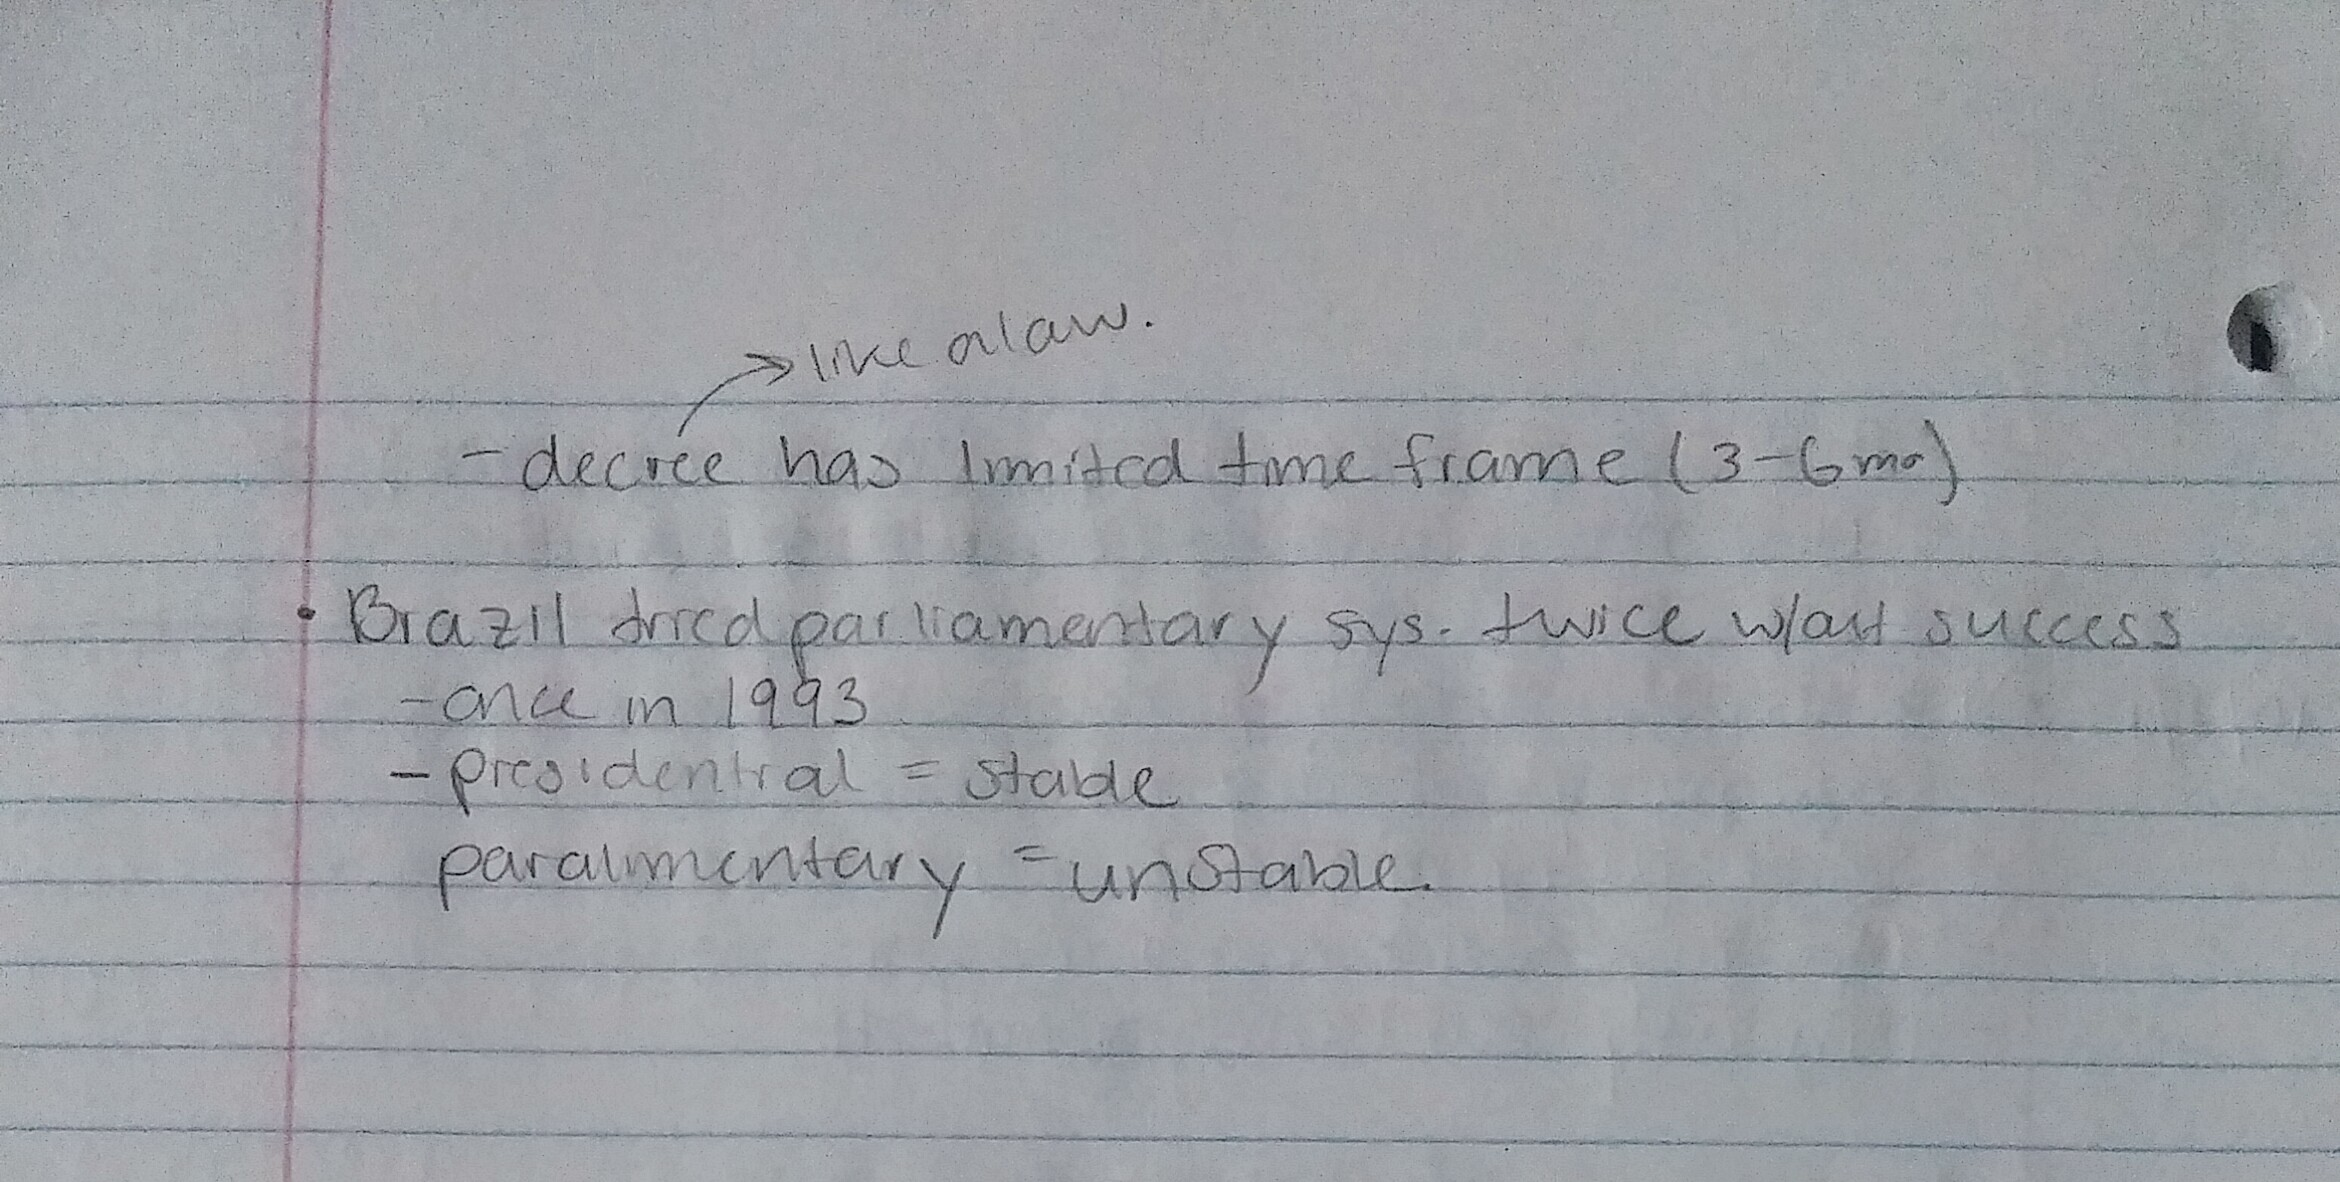 → like a law.
- decree has limited time frame (3-6 mo)
• Brazil tried parliamentary sys. twice w/out success
- once in 1993
- presidential = stable
paralimentary = unstable.